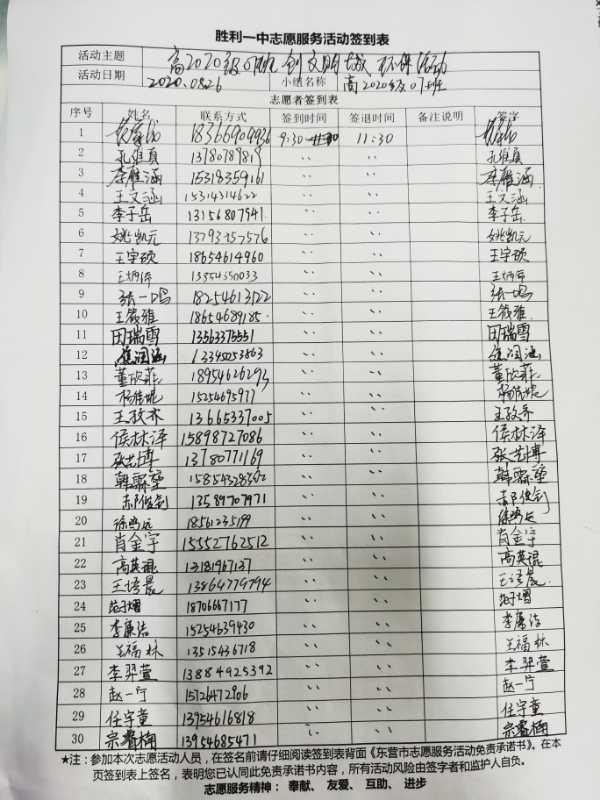 胜利一中志愿服务活动签到表
活动主题 高2020级07班 创文明城 环保活动
活动日期 2020.08.26 小组名称 高2020级07班
志愿者签到表
序号 姓名 联系方式 签到时间 签退时间 备注说明 签字
1 9:30 11:30
2 孔维真 13780789819 〃 〃 孔维真
3 李雁涵 15318359161 〃 〃 李雁涵
4 王文涵 15314314622 〃 〃 王文涵
5 李子岳 13156807941 〃 〃 李子岳
6 姚凯元 〃 〃 姚凯元
7 王宇硕 18654614960 〃 〃 王宇硕
8 〃 〃
9 张一鸣 〃 〃 张一鸣
10 王筱雅 18654689185 〃 〃 王筱雅
11 田瑞雪 13563375551 〃 〃 田瑞雪
12 润涵 13345053863 〃 〃 润涵
13 董欣菲 18954626293 〃 〃 董欣菲
14 15254695977 〃 〃
15 13665337005 〃 〃
16 侯林泽 15898727086 〃 〃 侯林泽
17 张艺博 13780771169 〃 〃 张艺博
18 韩霖堃 〃 〃 韩霖堃
19 郝俊钊 13589707971 〃 〃 郝俊钊
20 徐鸣远 18561235199 〃 〃 徐鸣远
21 肖金宇 15552762512 〃 〃 肖金宇
22 高英琨 13181967137 〃 〃 高英琨
23 王培晟 13864779794 〃 〃
24 18706667177 〃 〃
25 李廉洁 15254639430 〃 〃 李廉洁
26 王福林 13515436718 〃 〃 王福林
27 李羿萱 13884925392 〃 〃 李羿萱
28 赵一宁 15726472906 〃 〃 赵一宁
29 任宇童 13954616818 〃 〃 任宇童
30 宗睿楠 13954685471 〃 〃 宗睿楠
*注：参加本次志愿活动人员，在签名前请仔细阅读签到表背面《东营市志愿服务活动免责承诺书》。在本
页签到表上签名，表明您已认同此免责承诺书内容，所有活动风险由签字者和监护人自负。
志愿服务精神：奉献、友爱、互助、进步